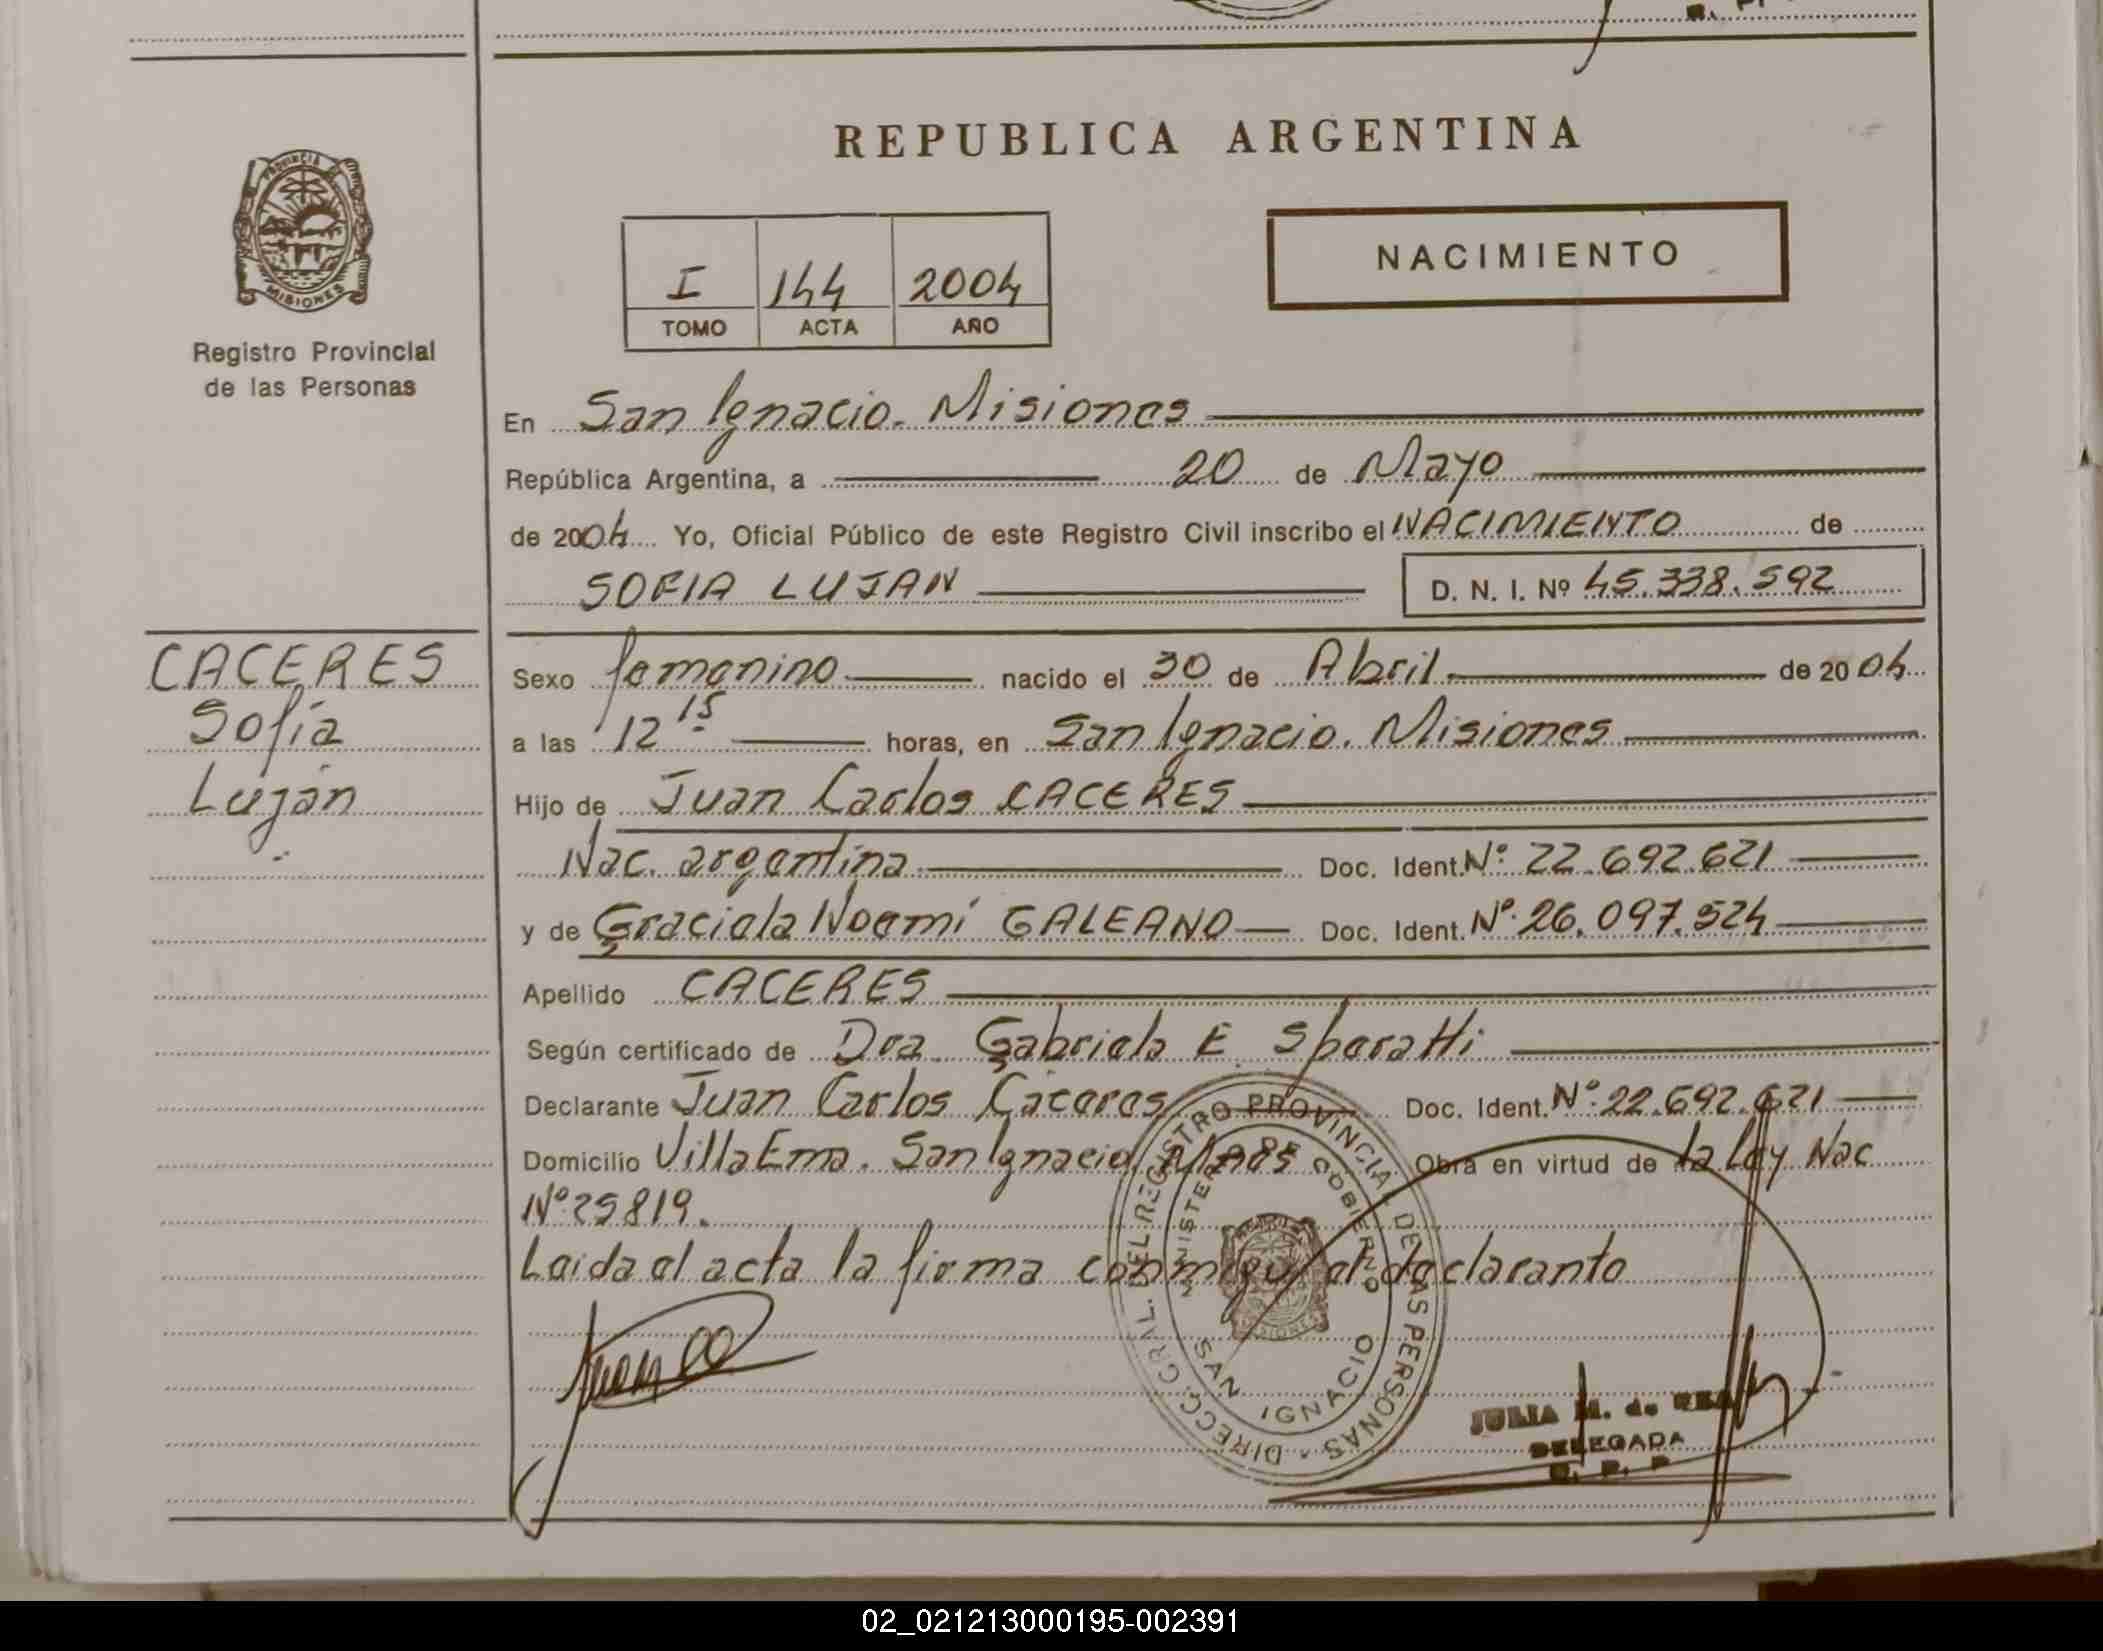 REPUBLICA ARGENTINA
PROVINCIA
MISIONES
Registro Provincial
de las Personas
I 144 2004
TOMO ACTA AÑO
NACIMIENTO
En San Ignacio. Misiones
República Argentina, a 20 de Mayo
de 2004 Yo, Oficial Público de este Registro Civil inscribo el NACIMIENTO de
SOFIA LUJAN D. N. I. Nº 45.338.592
CACERES
Sofía
Luján
Sexo femenino nacido el 30 de Abril de 2004
a las 12 15 horas, en San Ignacio. Misiones
Hijo de Juan Carlos CACERES
Nac. argentina Doc. Ident. Nº 22.692.621
y de Graciela Noemí GALEANO Doc. Ident. Nº 26.097.524
Apellido CACERES
Según certificado de Dra. Gabriela E.
Declarante Juan Carlos Cáceres Doc. Ident. Nº 22.692.621
Domicilio Villa Ema. San Ignacio. Mnes Obra en virtud de la Ley Nac
Nº 25819.
Leida el acta la firma conmigo el declarante
DIRECC. GRAL. DEL REGISTRO PROVINCIAL DE LAS PERSONAS
MINISTERIO DE GOBIERNO
SAN IGNACIO
JULIA M. de
DELEGADA
R. P. P.
02_021213000195-002391